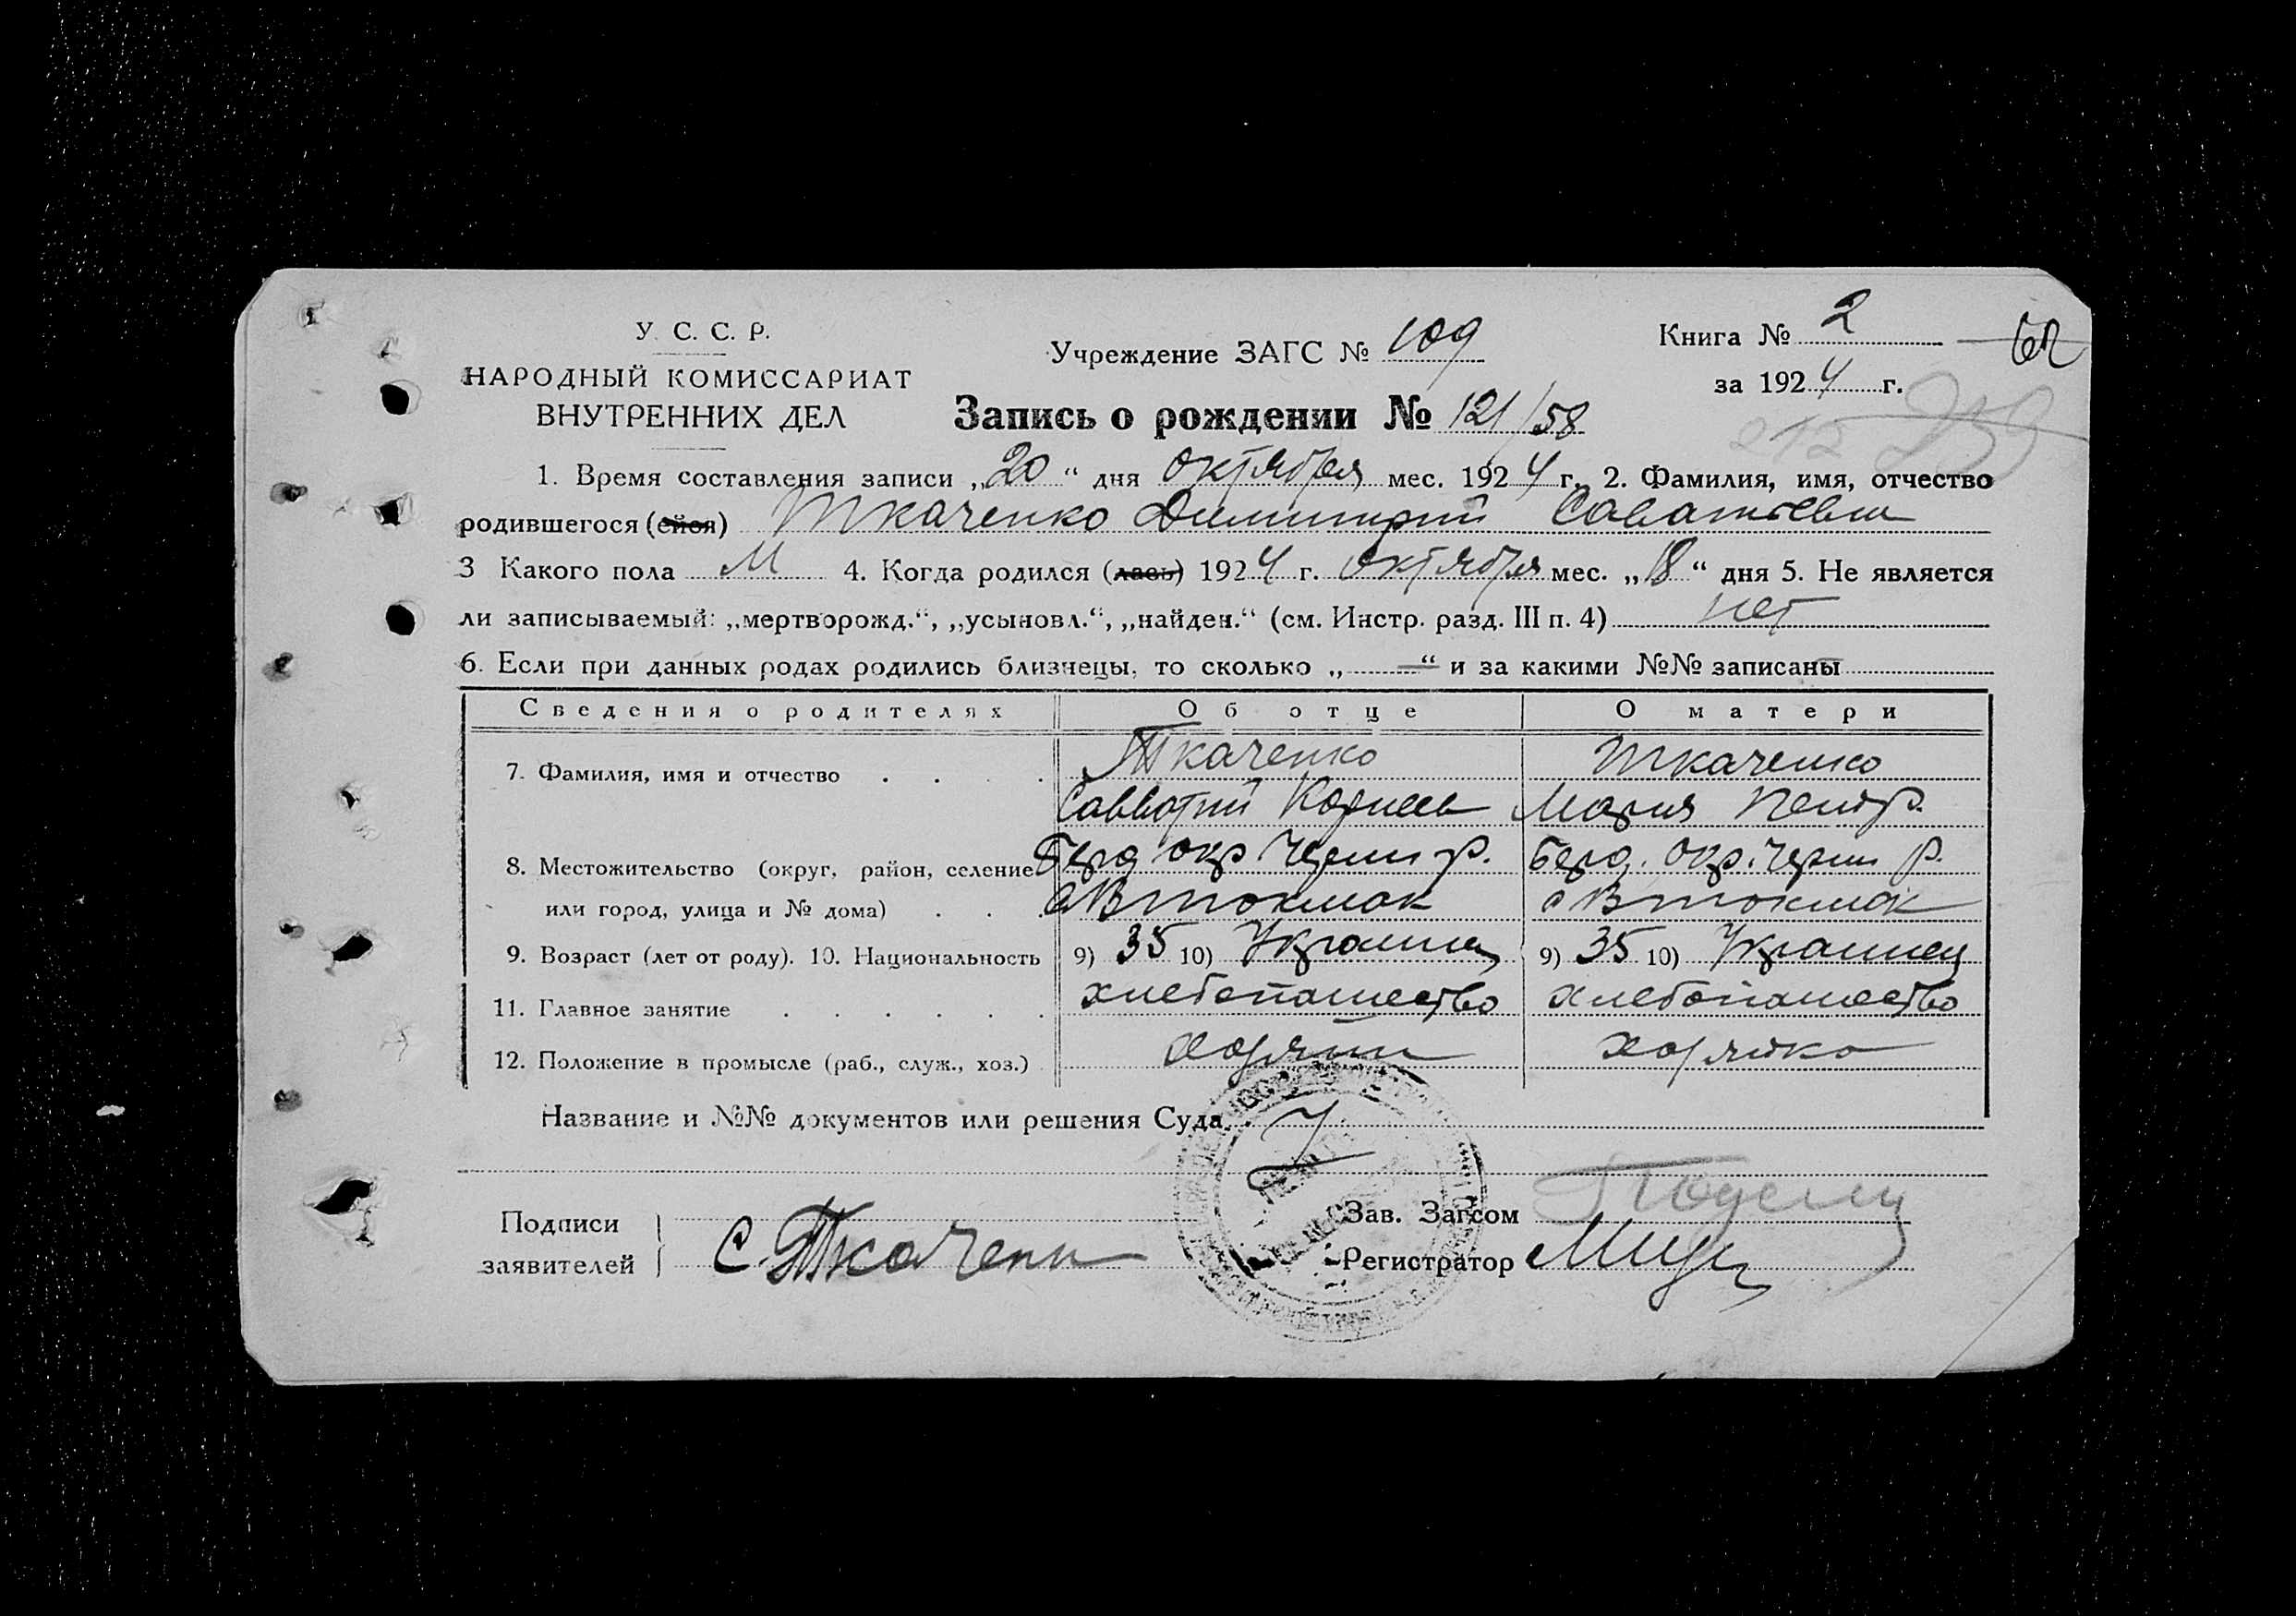 У. С. С. Р.
НАРОДНЫЙ КОМИССАРИАТ
ВНУТРЕННИХ ДЕЛ
Учреждение ЗАГС № 109
Книга № 2
за 1924 г.
Запись о рождении № 121/58
1. Время составления записи „20“ дня октября мес. 1924 г. 2. Фамилия, имя, отчество
родившегося (ейся) Ткаченко Димитрий Саватьевич
3 Какого пола М 4. Когда родился (лась) 1924 г. Октября мес. „18“ дня 5. Не является
ли записываемый: „мертворожд.“, „усыновл.“, „найден.“ (см. Инстр. разд. III п. 4) нет
6. Если при данных родах родились близнецы, то сколько „—“ и за какими №№ записаны
Сведения о родителях Об отце О матери
7. Фамилия, имя и отчество Ткаченко Ткаченко
Савватий Корнеев Мария Петр.
8. Местожительство (округ, район, селение Берд окр Черн р. Берд. Окр. Черн р.
или город, улица и № дома) с В токмак с В токмак
9. Возраст (лет от роду). 10. Национальность 9) 35 10) Украинец 9) 35 10) Украинец
11. Главное занятие хлебопашество хлебопашество
12. Положение в промысле (раб., служ., хоз.) хозяин хозяйка
Название и №№ документов или решения Суда
Подписи
заявителей С. Ткачени
Зав. Загсом
Регистратор